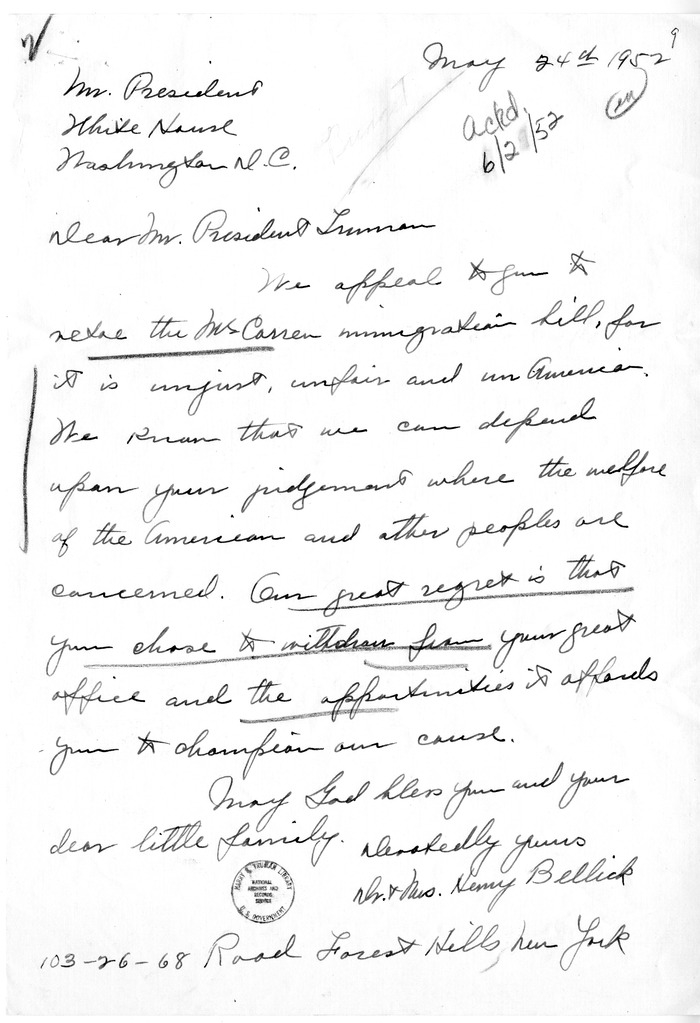 9
May 24th 1952
Mr. President
White House
Washington D.C.
Ackd.
6/2/52
Dear Mr. President Truman
We appeal to you to
vetoe the McCarren immigration bill, for
it is unjust, unfair and un American.
We know that we can depend
upon your judgement where the welfare
of the American and other peoples are
concerned. Our great regret is that
you chose to withdraw from your great
office and the opportunities it affords
you to champion our cause.
May God bless you and your
dear little family.
Devotedly yours
Dr. & Mrs. Henry Bellick
HARRY S. TRUMAN LIBRARY
NATIONAL
ARCHIVES AND
RECORDS
SERVICE
U. S. GOVERNMENT
103-26-68 Road Forest Hills, New York